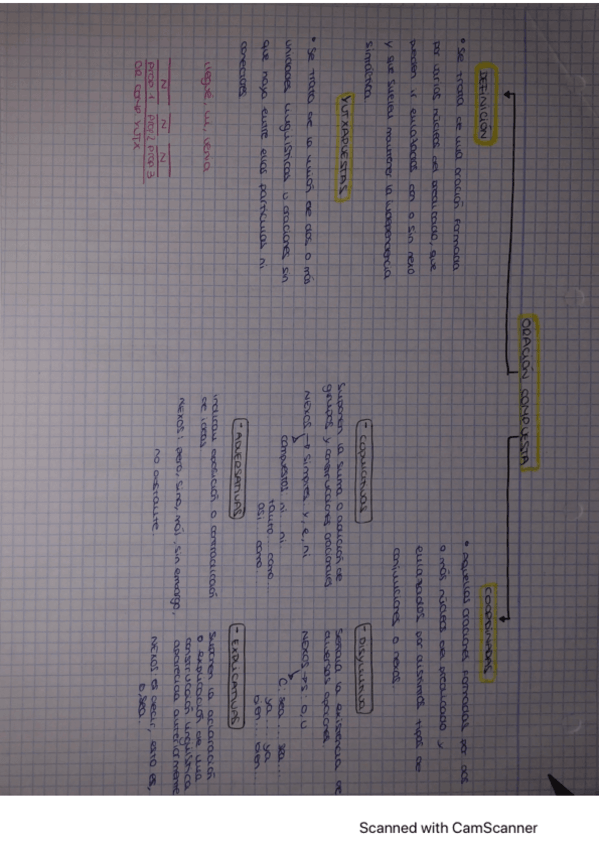 ORACIÓN COMPUESTA
DEFINICIÓN
• Se trata de una oración formada
por varios núcleos del predicado, que
pueden ir enlazados con o sin nexo
y que suelen mantener la independencia
sintáctica
YUTXAPUESTAS
• Se trata de la unión de dos o más
unidades lingüísticas u oraciones sin
que haya entre ellas partículas ni
conectores
llegué, vi, vencí
N N N
PROP.1 PROP.2 PROP 3
OR COMP. YUTX
COORDINADAS
• Aquellas oraciones formadas por dos
o más núcleos de predicado y
enlazados por distintos tipos de
conjunciones o nexos
- COPULATIVAS
Suponen la suma o adición de
grupos y construcciones oracionales
NEXOS → simples y, e, ni
compuestos ni... ni
tanto... como...
así... como...
- ADVERSATIVAS
Indican oposición o contradicción
de ideas
NEXOS: pero, sino, mas, sin embargo,
no obstante
- DISYUNTIVA
Señala la existencia de
diversas opciones
NEXOS → S: o, u
C: sea... sea...
ya... ya
bien... bien...
- EXPLICATIVAS
Suponen la aclaración
o explicación de una
construcción lingüística
aparecida anteriormente
NEXOS es decir, esto es,
o sea..
Scanned with CamScanner